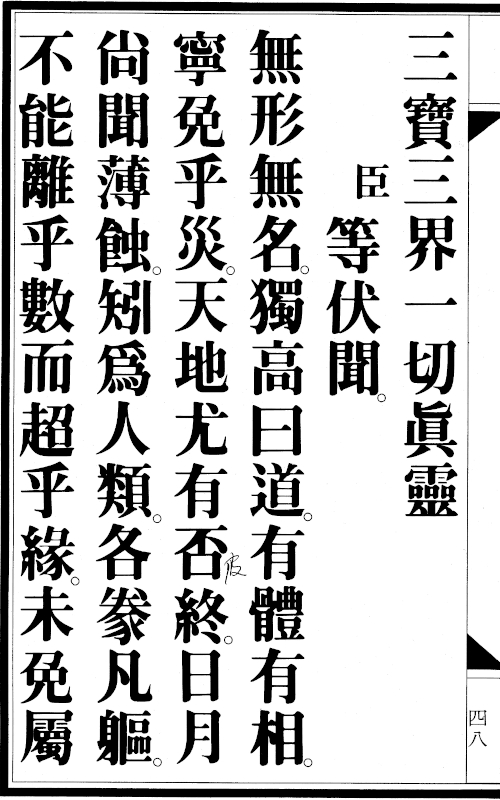 四八
三寶三界一切眞靈
臣等伏聞。
無形無名。獨高曰道。有體有相。
寧免乎災。天地尤有否終。日月
尙聞薄蝕。矧爲人類。各豢凡軀。
不能離乎數而超乎緣。未免屬